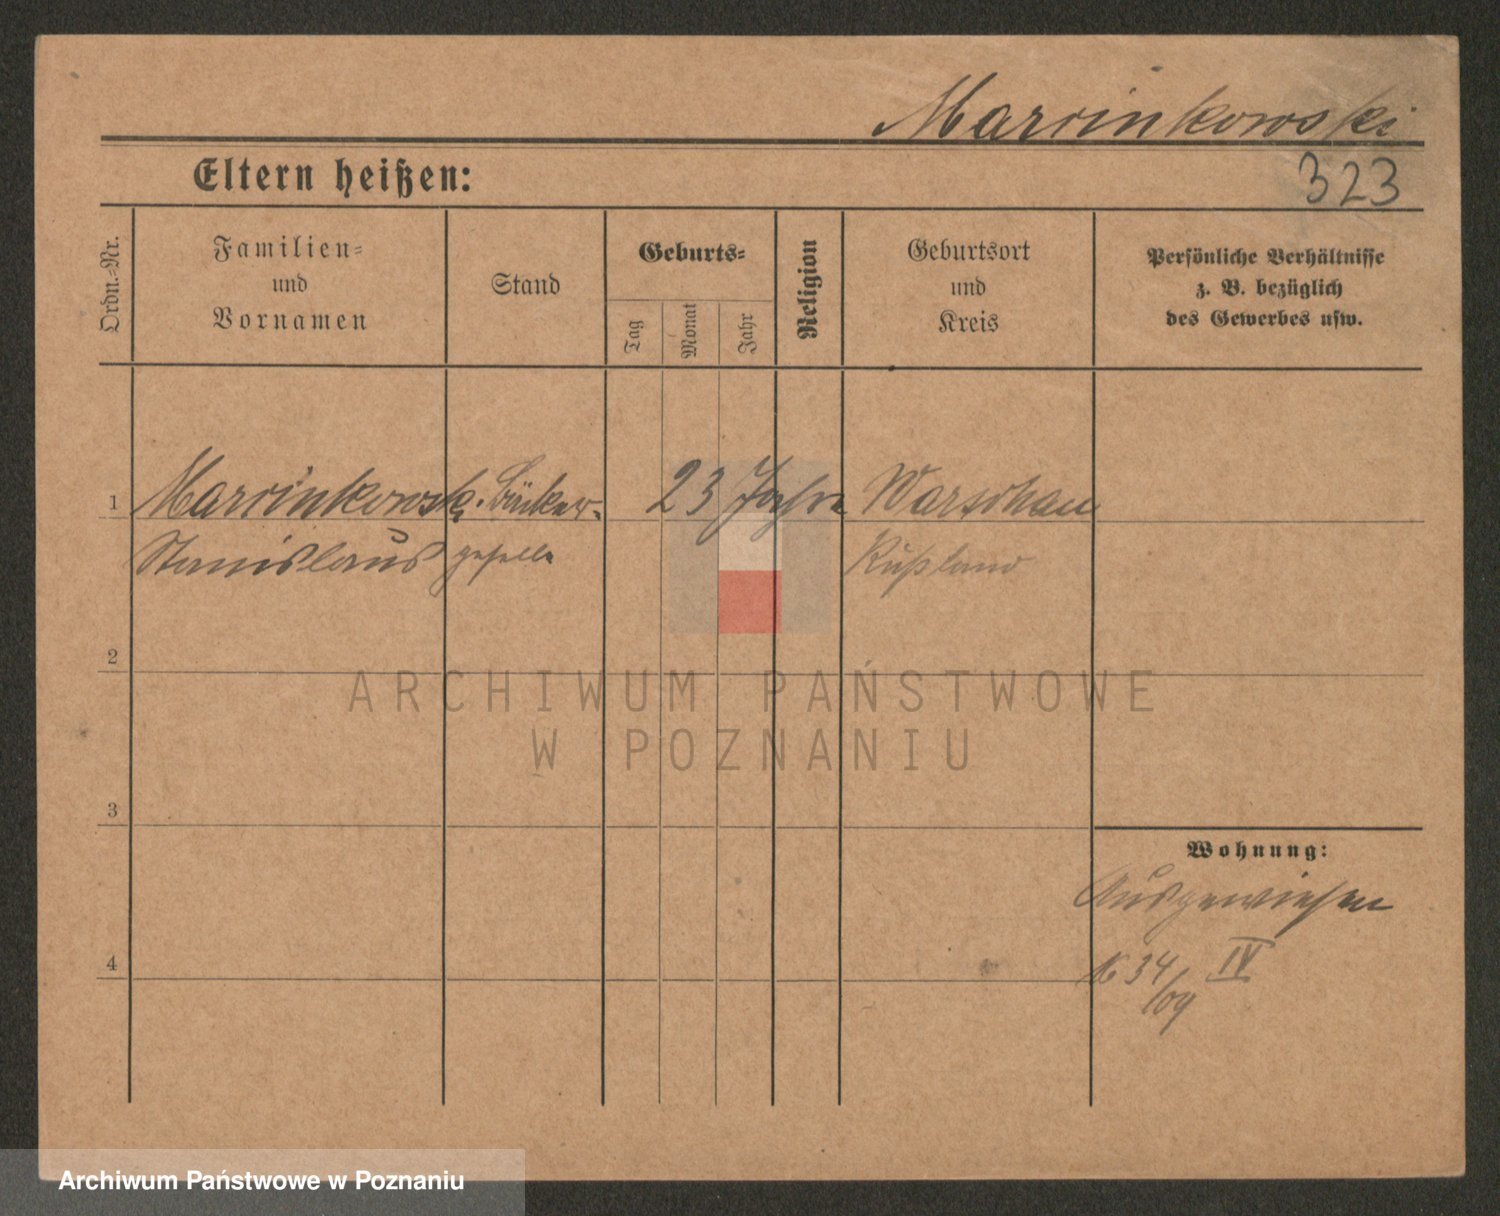 Marcinkowski
Eltern heißen:
323
Ordn.-Nr.
Familien-
und
Vornamen
Stand
Geburts-
Tag
Monat
Jahr
Religion
Geburtsort
und
Kreis
Persönliche Verhältnisse
z. B. bezüglich
des Gewerbes usw.
1 Marcinkowski Bäcker- 23 Jahre Warschau
Stanislaus geselle Rußland
2
ARCHIWUM PAŃSTWOWE
W POZNANIU
3
Wohnung:
Ausgewiesen
4
34/09 IV
Archiwum Państwowe w Poznaniu